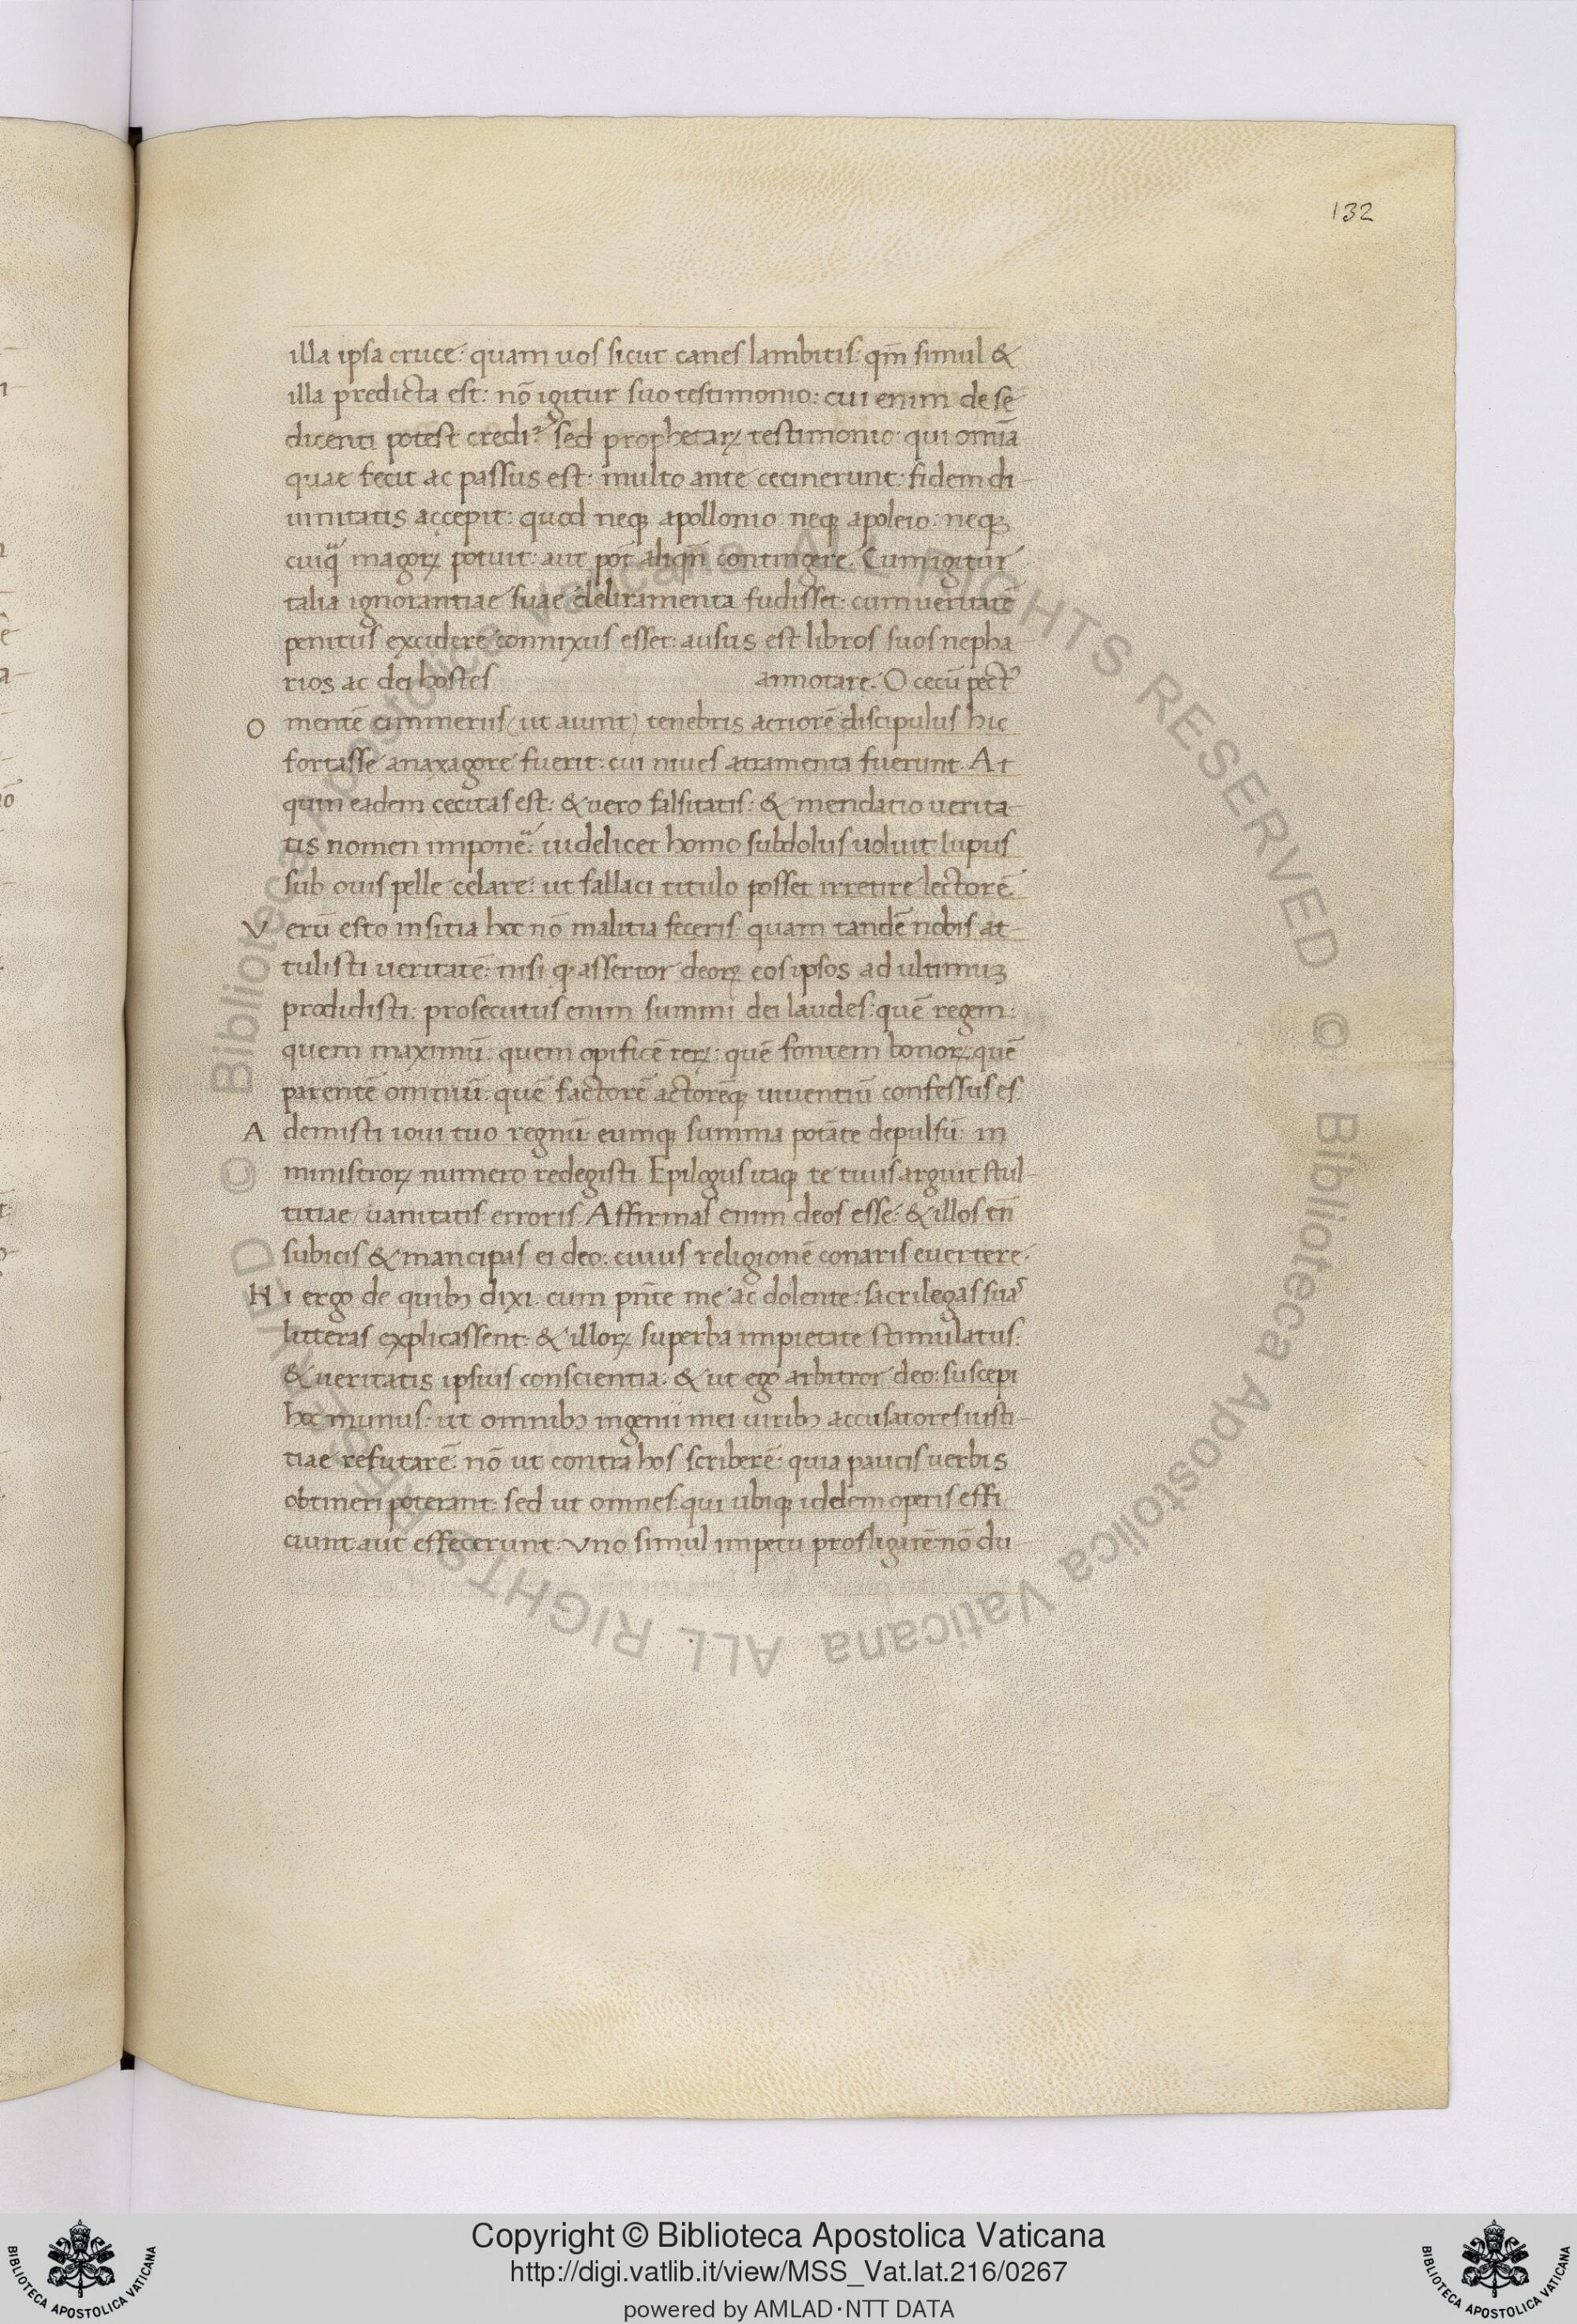 132
illa ipsa cruce: quam uos sicut canes lambitis: qm̅ simul &
illa predicta est: nō igitur suo testimonio: cui enim de se
dicenti potest credi? sed prophetaꝝ testimonio qui omīa
quae fecit ac passus est: multo ante cecinerunt: fidem di-
uinitatis accepit: quod neqꝫ apollonio neqꝫ apoleio: neqꝫ
cuiq̈ magoꝝ potuit aut pot̄ aliqn̄ contingere. Cum igitur
talia ignorantiae suae deliramenta fudisset: cum ueritatē
penitus excidere connixus esset: ausus est libros suos nepha-
rios ac dei hostes annotare. O cecū pect᾿
O mentē cimmeriis (ut aiunt) tenebris atriorē discipulus hic
fortasse anaxagore fuerit: cui niues atramenta fuerunt. At
quin eadem cecitas est: & uero falsitatis: & mendatio uerita-
tis nomen imponē: uidelicet homo subdolus uoluit lupus
sub ouis pelle celare: ut fallaci titulo posset irretire lectorē.
V erū esto insitia hoc nō malitia feceris: quam tandē nobis at-
tulisti ueritatē: nisi ꝙ assertor deoꝝ eos ipsos ad ultimuꝫ
prodidisti: prosecutus enim summi dei laudes: quē regem:
quem maximū: quem opificē reꝝ: quē fontem bonoꝝ: quē
parentē omniū: quē factorē actorēqꝫ uiuentiū confessus es:
A demisti ioui tuo regnū: eumqꝫ summa potāte depulsū: in
ministroꝝ numero redegisti. Epilogus itaqꝫ te tuus arguit stul-
titiae / uanitatis erroris. Affirmas enim deos esse: & illos tn̄
subicis & mancipas ei deo: cuius religionē conaris euertere.
H i ergo de quibꝫ dixi. cum pn̄te me ac dolente: sacrilegas suas
litteras explicassent: & illoꝝ superba impietate stimulatus:
& ueritatis ipsius conscientia: & ut ego arbitror deo: suscepi
hoc munus: ut omnibꝫ ingenii mei uiribꝫ accusatores iusti-
tiae refutarē: nō ut contra hos scriberē: quia paucis uerbis
obtineri poterant: sed ut omnes: qui ubiqꝫ iddem operis effi
ciunt aut effecerunt: uno simul impetu profligarē: nō du-
© Biblioteca Apostolica Vaticana ALL RIGHTS RESERVED © Biblioteca Apostolica Vaticana ALL RIGHTS RESERVED
BIBLIOTECA APOSTOLICA VATICANA
Copyright © Biblioteca Apostolica Vaticana
http://digi.vatlib.it/view/MSS_Vat.lat.216/0267
powered by AMLAD·NTT DATA
BIBLIOTECA APOSTOLICA VATICANA